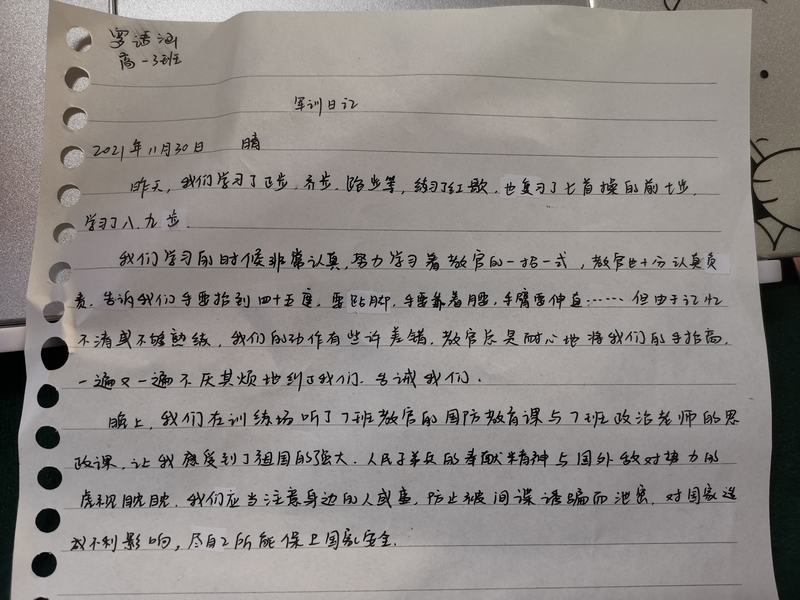 罗语涵
高一3班
军训日记
2021年11月30日 晴
昨天，我们学习了正步、齐步、踏步等，练习了红歌，也复习了七首操的前七步，
学习了八、九步.
我们学习的时候非常认真，努力学习着教官的一招一式，教官也十分认真负
责，告诉我们手要抬到四十五度，要跕脚，手要靠着腰，手臂要伸直……但由于记忆
不清或不够熟练，我们的动作有些许差错，教官总是耐心地将我们的手抬高，
一遍又一遍不厌其烦地纠了我们、告诫我们.
晚上，我们在训练场听了7班教官的国防教育课与7班政治老师的思
政课，让我感受到了祖国的强大、人民子弟兵的奉献精神与国外敌对势力的
虎视眈眈，我们应当注意身边的人或事，防止被间谍诱骗而泄密，对国家造
成不利影响，尽自己所能保卫国家安全.